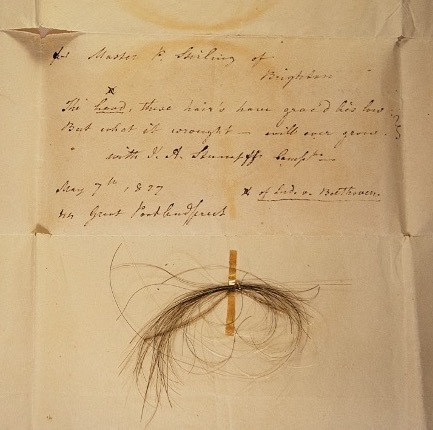 for Master P. Stirling of
Brighton
x
The head, these hair's have grac'd lies low
But what it wrought — will ever grow.
with J. A. Stumpff's
May 7th, 1827 x of Ludv. v. Beethoven.
Great Portland Street